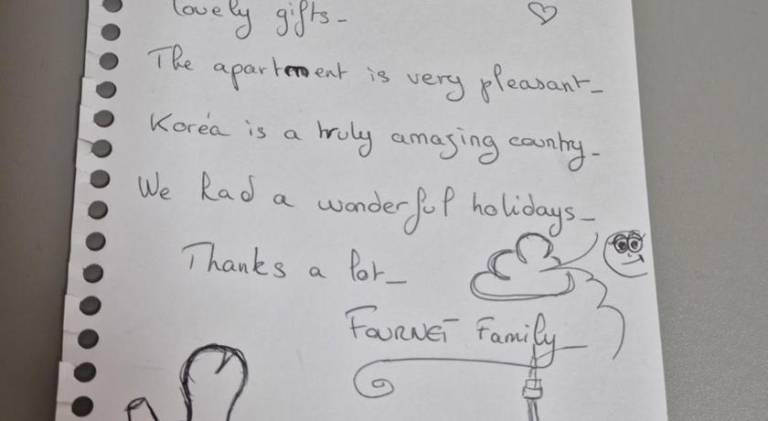 lovely gifts_
The apartment is very pleasant_
Koréa is a truly amazing country_
We had a wonderful holidays_
Thanks a lot_
FOURNET Family